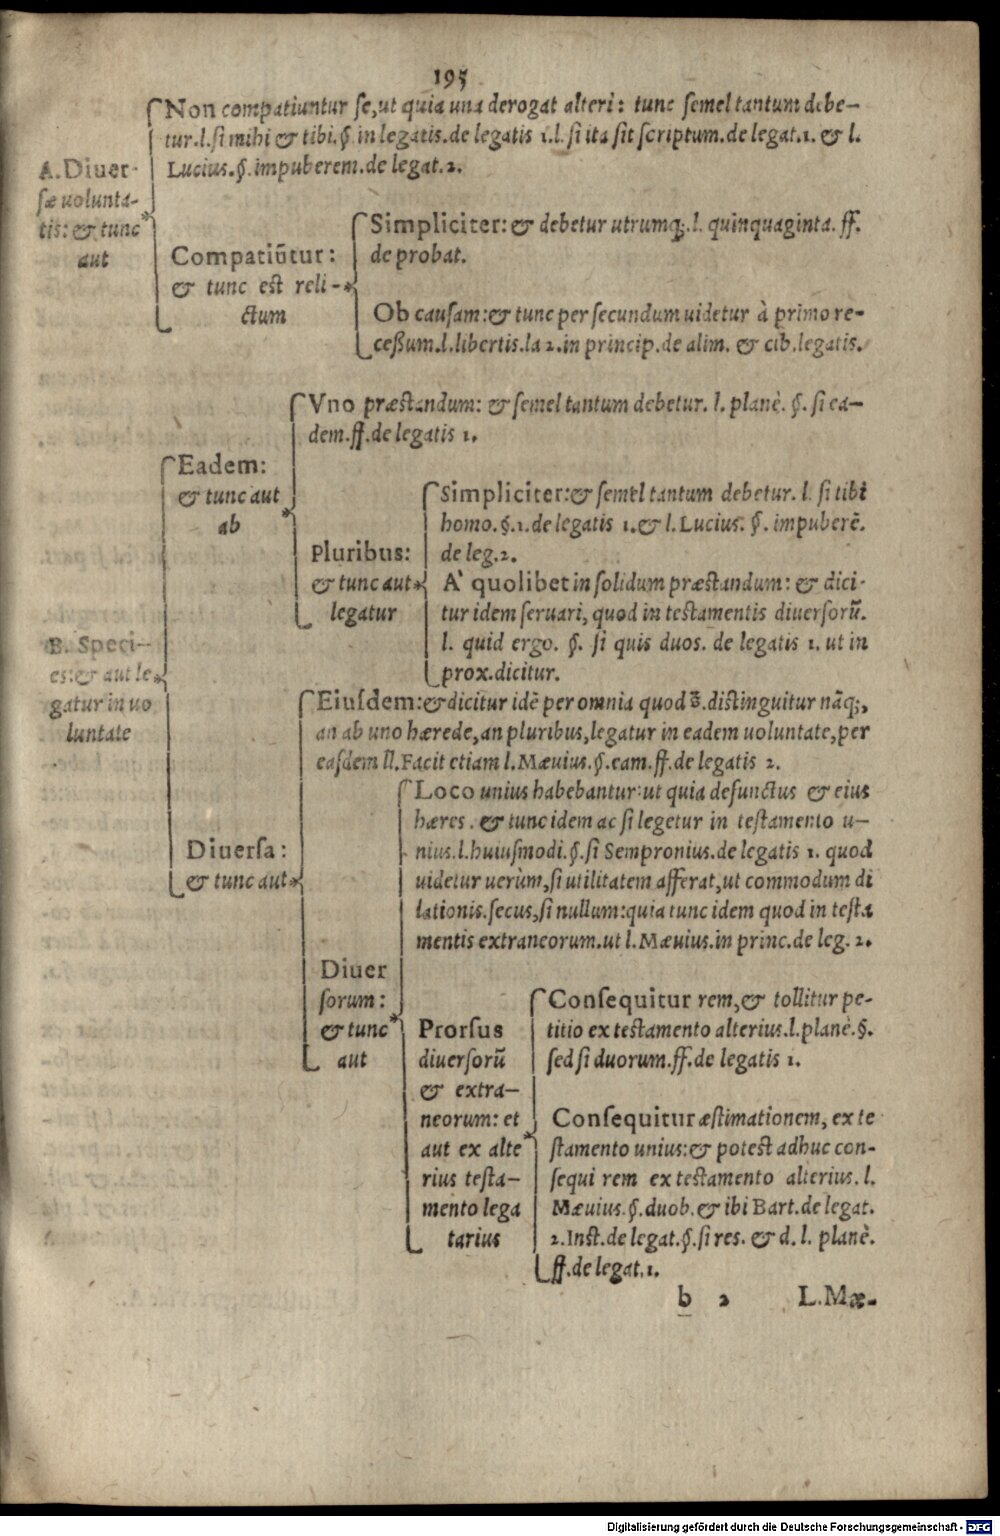 195
Non compatiuntur se, ut quia una derogat alteri: tunc semel tantum debe-
tur. l. si mihi & tibi. §. in legatis. de legatis 1. l. si ita sit scriptum. de legat. 1. & l.
Lucius. §. impuberem. de legat. 2.
A. Diuer-
sæ uolunta-
tis: & tunc
aut
Compatiūtur:
& tunc est reli-
ctum
Simpliciter: & debetur utrumq;. l. quinquaginta. ff.
de probat.
Ob causam: & tunc per secundum uidetur à primo re-
cessum. l. libertis. la 2. in princip. de alim. & cib. legatis.
B. Speci-
es: & aut le
gatur in uo
luntate
Eadem:
& tunc aut
ab
Vno præstandum: & semel tantum debetur. l. planè. §. si ea-
dem. ff. de legatis 1.
Pluribus:
& tunc aut
legatur
Simpliciter: & semel tantum debetur. l. si tibi
homo. §. 1. de legatis 1. & l. Lucius. §. impuberē.
de leg. 2.
A' quolibet in solidum præstandum: & dici-
tur idem seruari, quod in testamentis diuersorū.
l. quid ergo. §. si quis duos. de legatis 1. ut in
prox. dicitur.
Diuersa:
& tunc aut
Eiusdem: & dicitur idē per omnia quod 3. distinguitur nāq;,
an ab uno hærede, an pluribus, legatur in eadem uoluntate, per
easdem ll. Facit etiam l. Mæuius. §. eam. ff. de legatis 2.
Diuer
sorum:
& tunc
aut
Loco unius habebantur: ut quia defunctus & eius
hæres. & tunc idem ac si legetur in testamento u-
nius. l. huiusmodi. §. si Sempronius. de legatis 1. quod
uidetur uerùm, si utilitatem afferat, ut commodum di
lationis. secus, si nullum: quia tunc idem quod in testa
mentis extraneorum. ut l. Mæuius. in princ. de leg. 2.
Prorsus
diuersorū
& extra-
neorum: et
aut ex alte
rius testa-
mento lega
tarius
Consequitur rem, & tollitur pe-
titio ex testamento alterius. l. planè. §.
sed si duorum. ff. de legatis 1.
Consequitur æstimationem, ex te
stamento unius: & potest adhuc con-
sequi rem ex testamento alterius. l.
Mæuius. §. duob. & ibi Bart. de legat.
2. Inst. de legat. §. si res. & d. l. planè.
ff. de legat. 1.
b 2 L. Mæ-
Digitalisierung gefördert durch die Deutsche Forschungsgemeinschaft - DFG